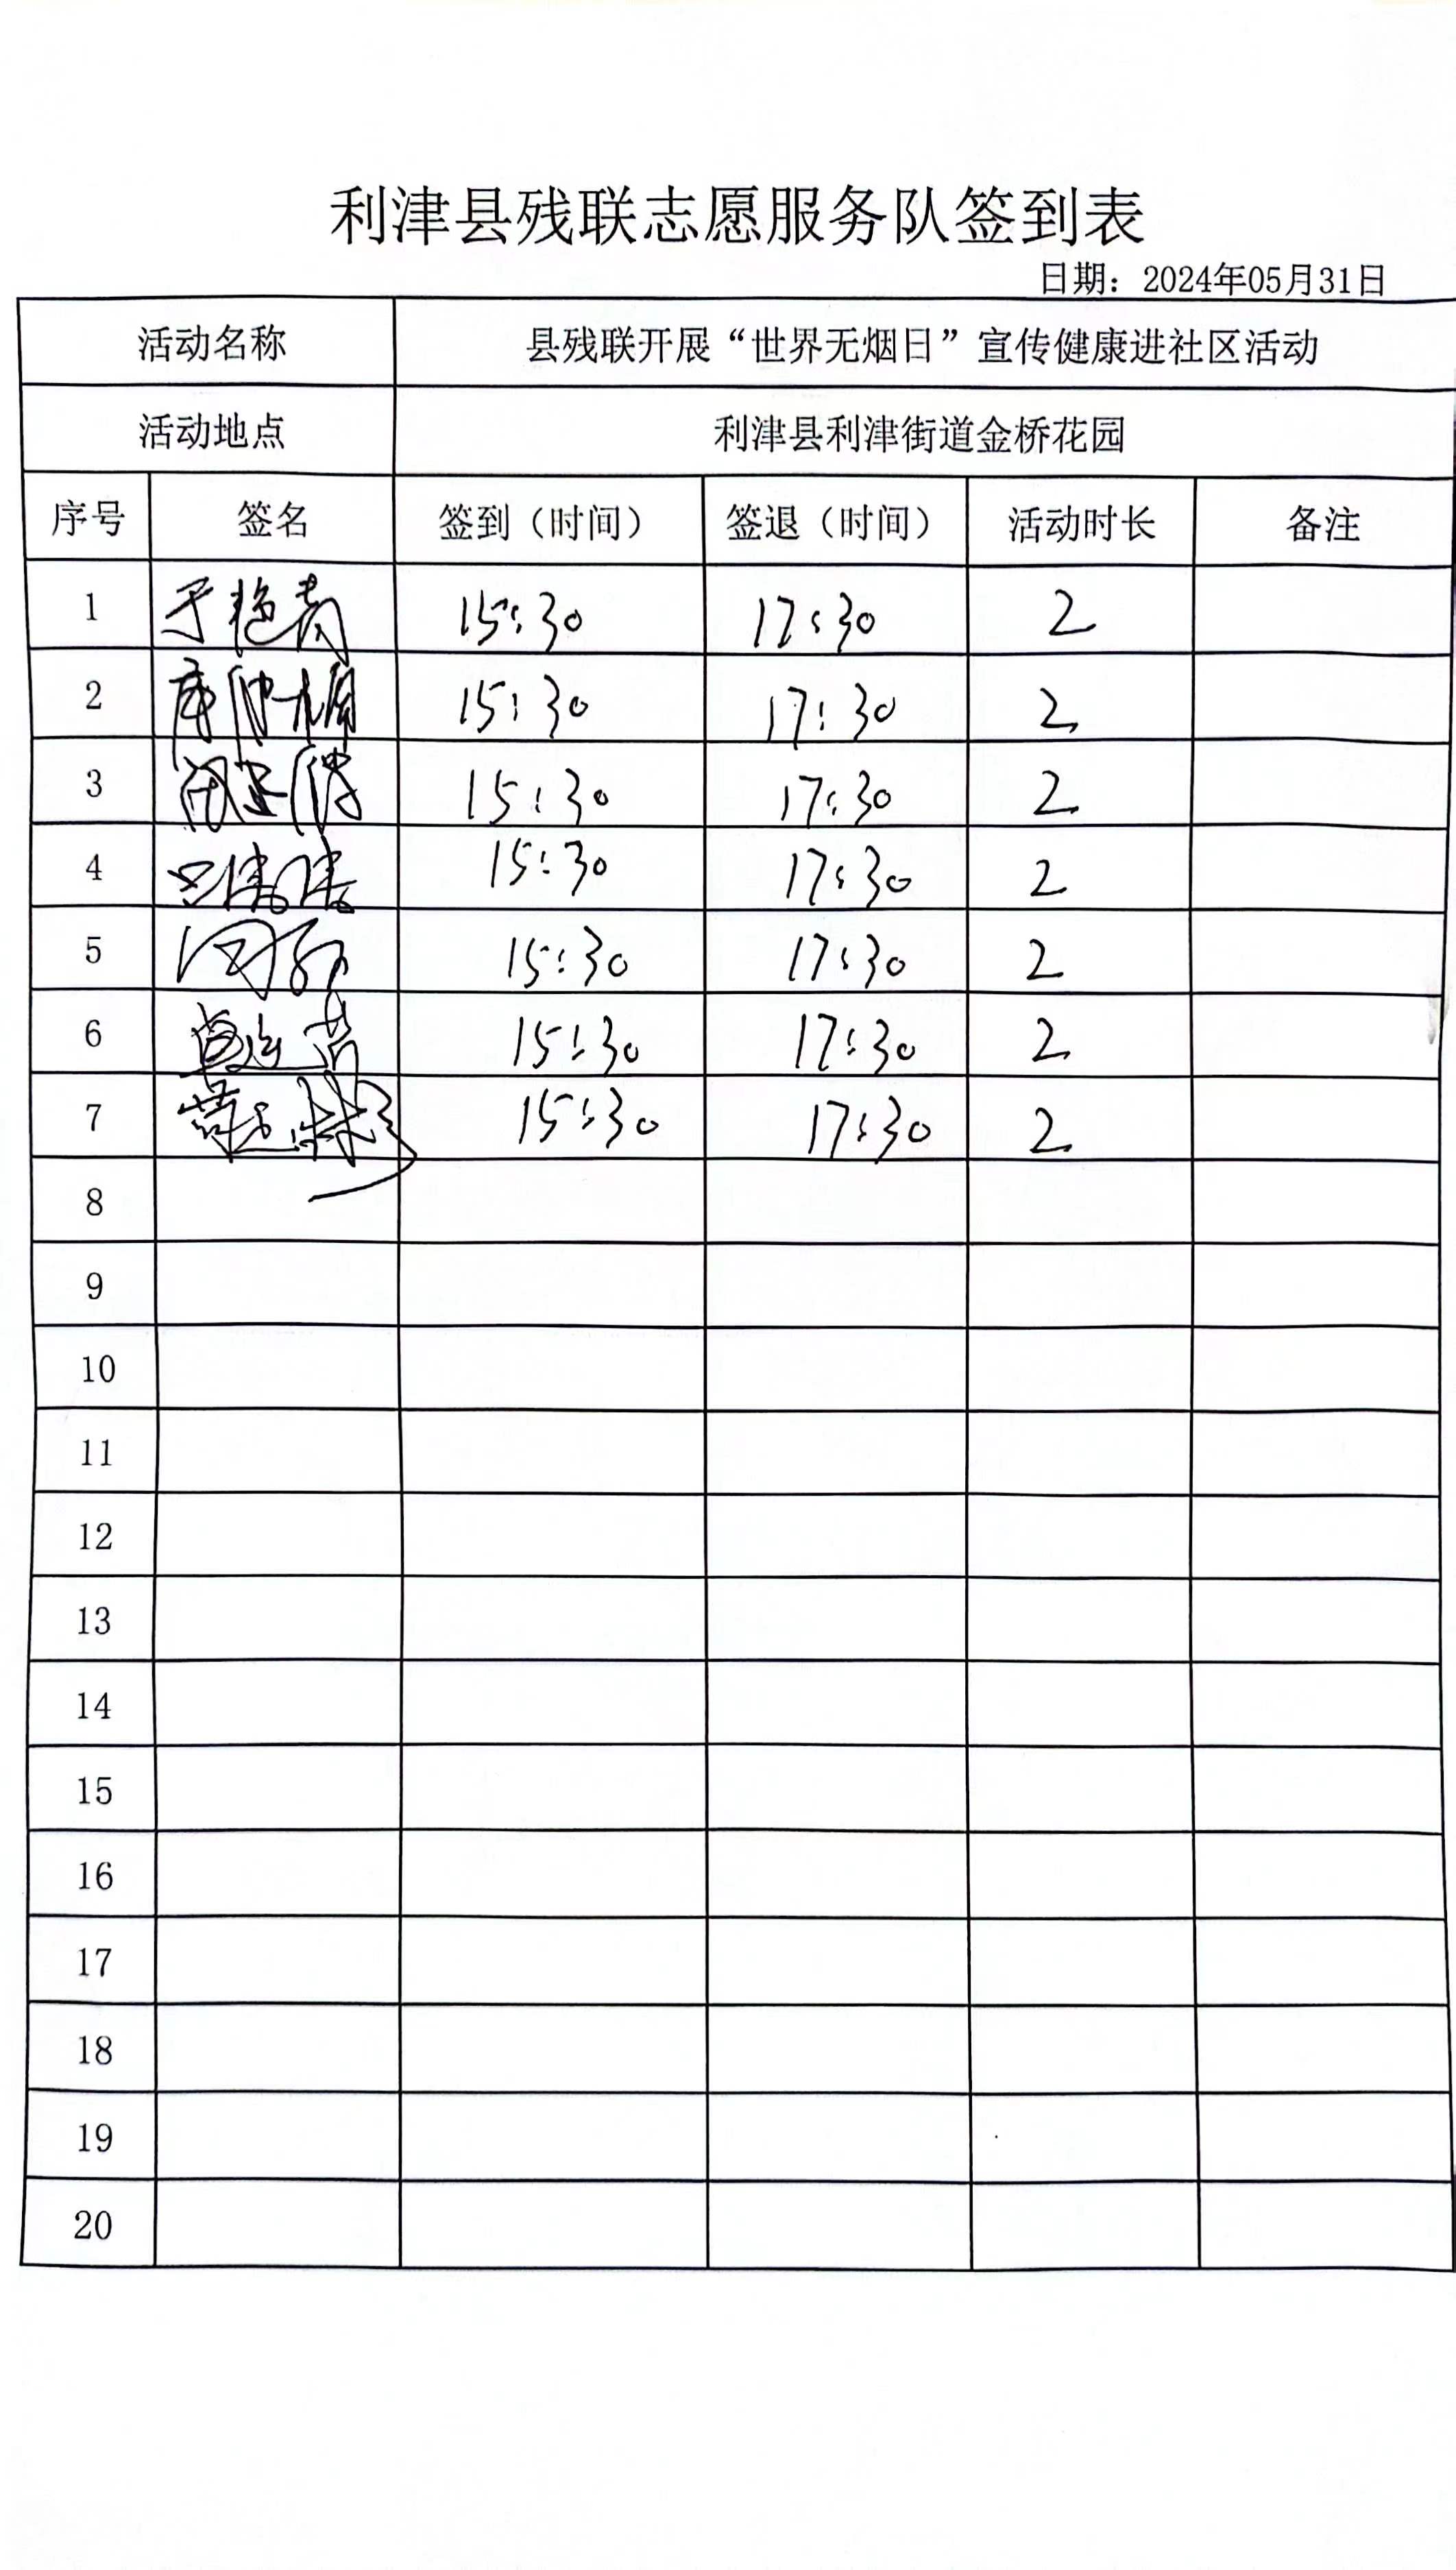 利津县残联志愿服务队签到表
日期：2024年05月31日
活动名称 县残联开展“世界无烟日”宣传健康进社区活动
活动地点 利津县利津街道金桥花园
序号 签名 签到（时间） 签退（时间） 活动时长 备注
1 15:30 17:30 2
2 15:30 17:30 2
3 15:30 17:30 2
4 15:30 17:30 2
5 15:30 17:30 2
6 15:30 17:30 2
7 15:30 17:30 2
8
9
10
11
12
13
14
15
16
17
18
19
20